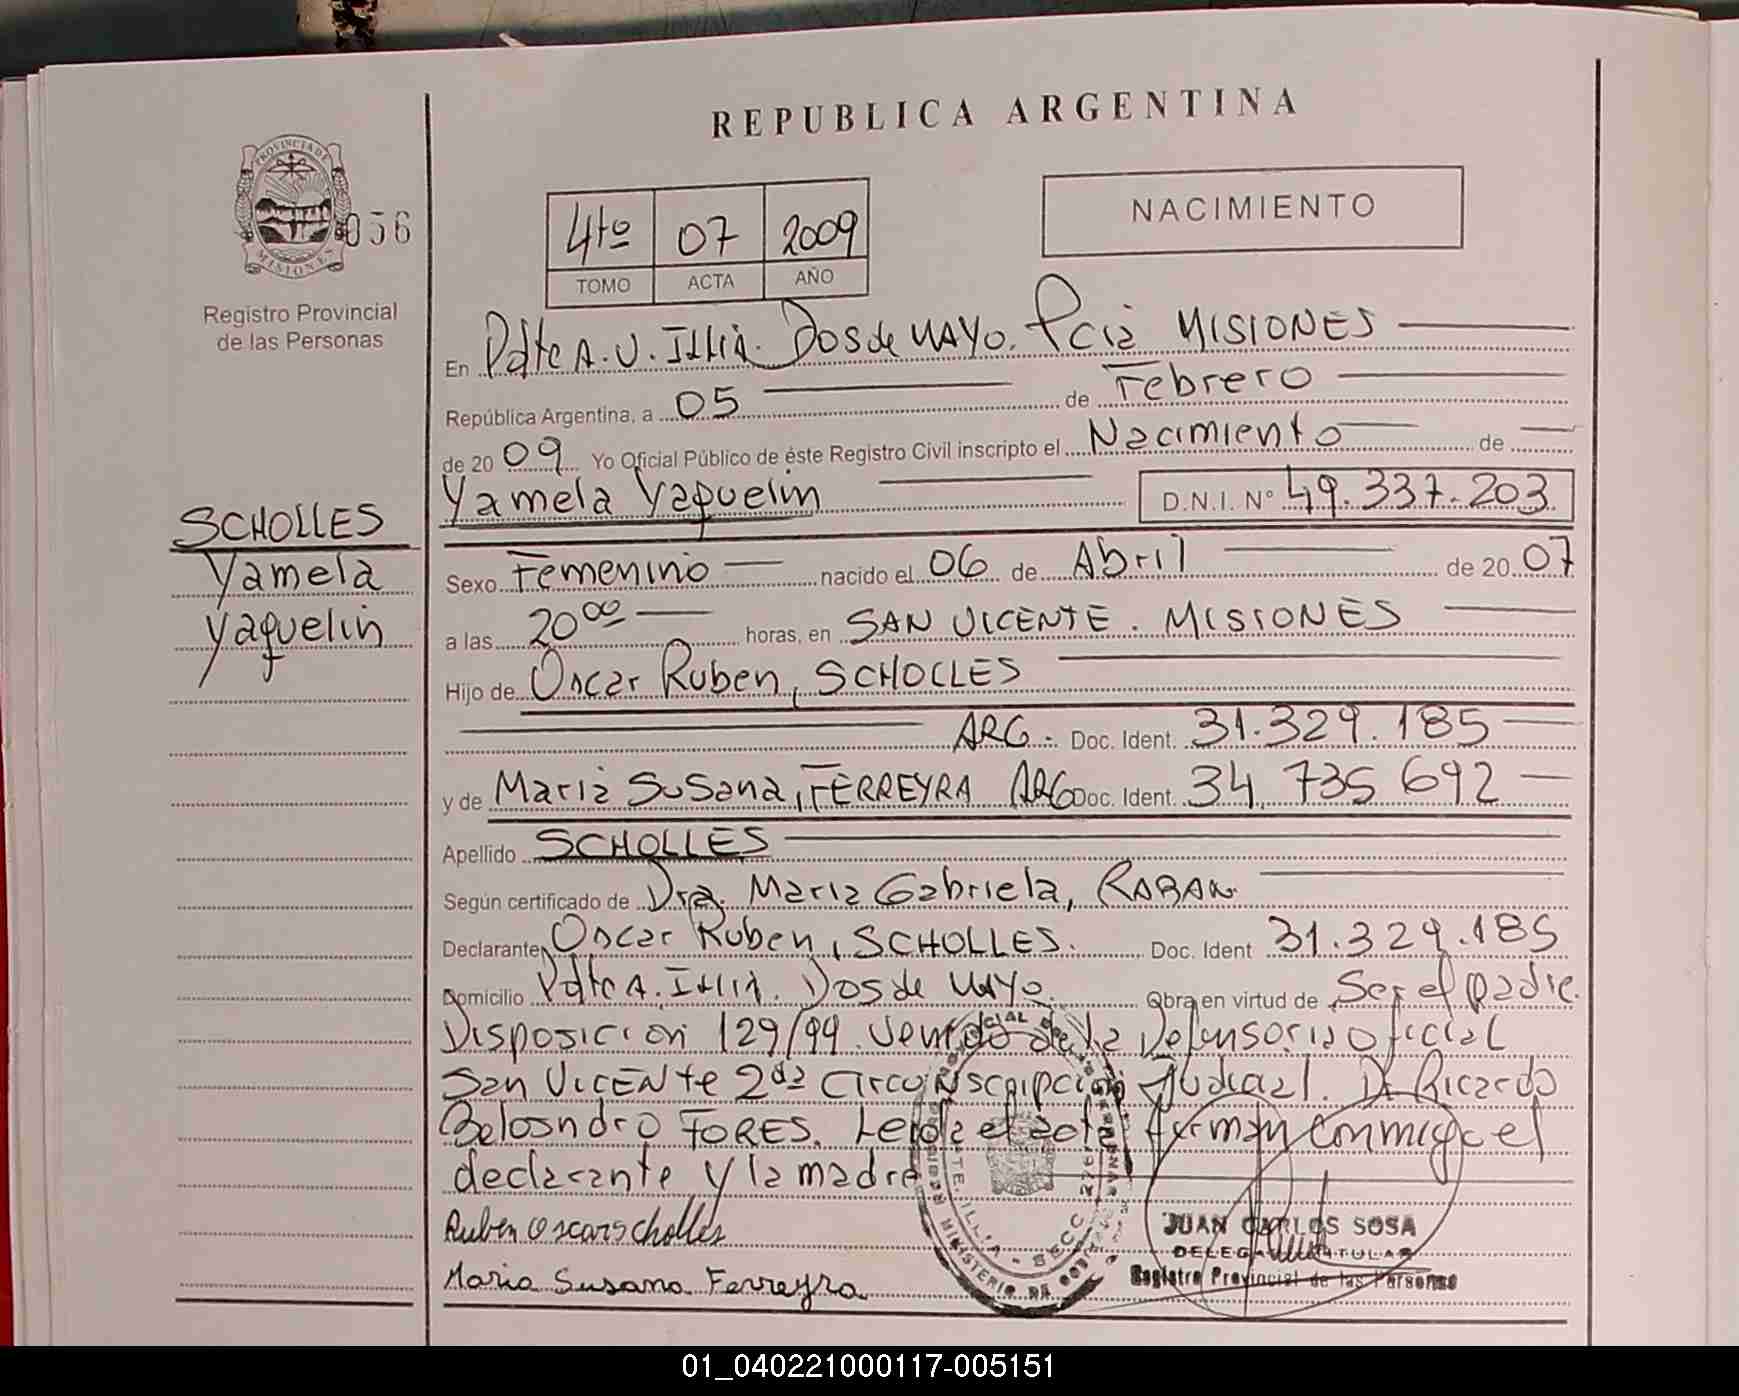 REPUBLICA ARGENTINA
PROVINCIA DE
MISIONES
056
Registro Provincial
de las Personas
4to 07 2009
TOMO ACTA AÑO
NACIMIENTO
En Pdte A. U. Illia. Dos de MAYO. Pcia MISIONES
República Argentina, a 05 de Febrero
de 20 09 Yo Oficial Público de éste Registro Civil inscripto el Nacimiento de
Yamela Yaquelin D.N.I. N° 49.337.203
SCHOLLES
Yamela
Yaquelin
Sexo Femenino nacido el 06 de Abril de 20 07
a las 20 00 horas, en SAN VICENTE . MISIONES
Hijo de Oscar Ruben, SCHOLLES
ARG. Doc. Ident. 31.329.185
y de Maria Susana, FERREYRA ARG Doc. Ident. 34.735 692
Apellido SCHOLLES
Según certificado de Dra. Maria Gabriela, RABAN
Declarante Oscar Ruben, SCHOLLES. Doc. Ident 31.329.185
Domicilio Pdte A. Illia. Dos de MAYO. Obra en virtud de Ser el padre.
Disposicion 129/99 venido de la Defensoria Oficial
San VICENte 2da Circunscripcion Judicial. Dr Ricardo
FORES. Leida el acta firman conmigo el
declarante y la madre
Ruben Oscar scholles
Maria Susana Ferreyra
JUAN CARLOS SOSA
DELEGADO TITULAR
Registro Provincial de las Personas
01_040221000117-005151